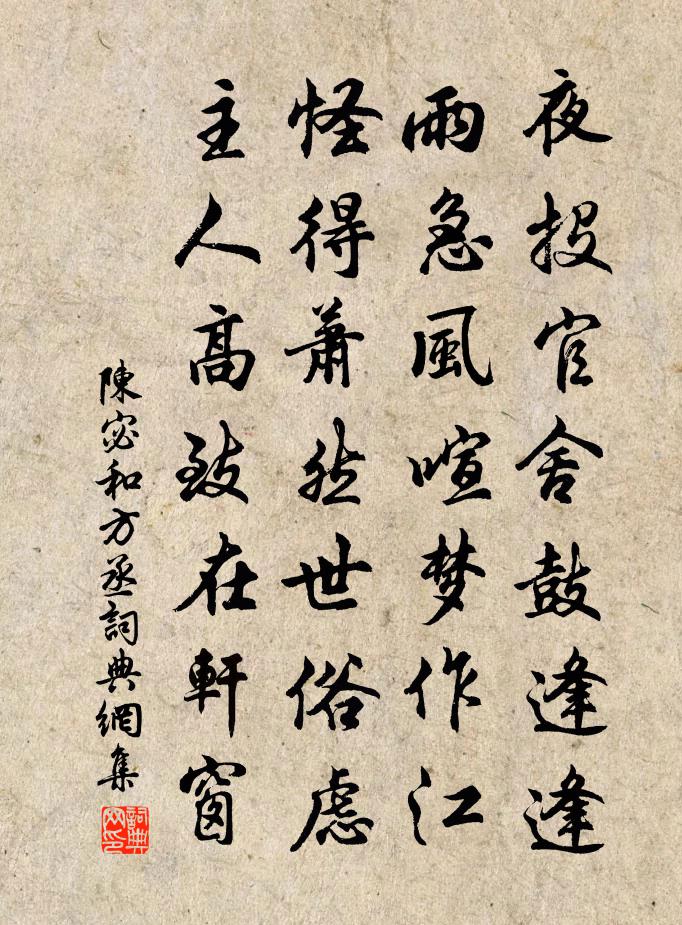 夜投官舍鼓逢逢
雨急風喧梦作江
怪得蕭然世俗虑
主人高致在軒窗
陳宓和方丞詞典網集
詞典网印